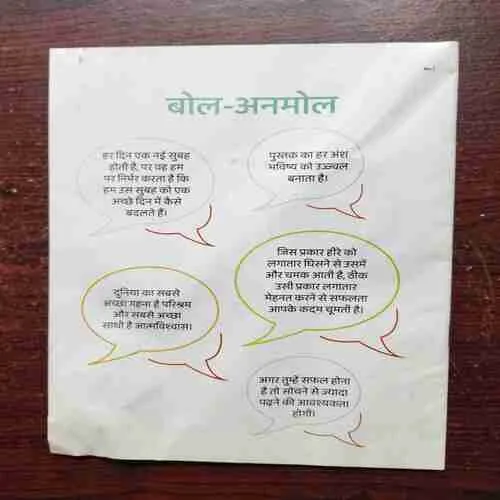 बोल-अनमोल
हर दिन एक नई सुबह
होती है, पर वह हम
पर निर्भर करता है कि
हम उस सुबह को एक
अच्छे दिन में कैसे
बदलते हैं।
पुस्तक का हर अंश
भविष्य को उज्ज्वल
बनाता है।
जिस प्रकार हीरे को
लगातार घिसने से उसमें
और चमक आती है, ठीक
उसी प्रकार लगातार
मेहनत करने से सफलता
आपके कदम चूमती है।
दुनिया का सबसे
अच्छा गहना है परिश्रम
और सबसे अच्छा
साथी है आत्मविश्वास।
अगर तुम्हें सफल होना
है तो सोचने से ज्यादा
पढ़ने की आवश्यकता
होगी।